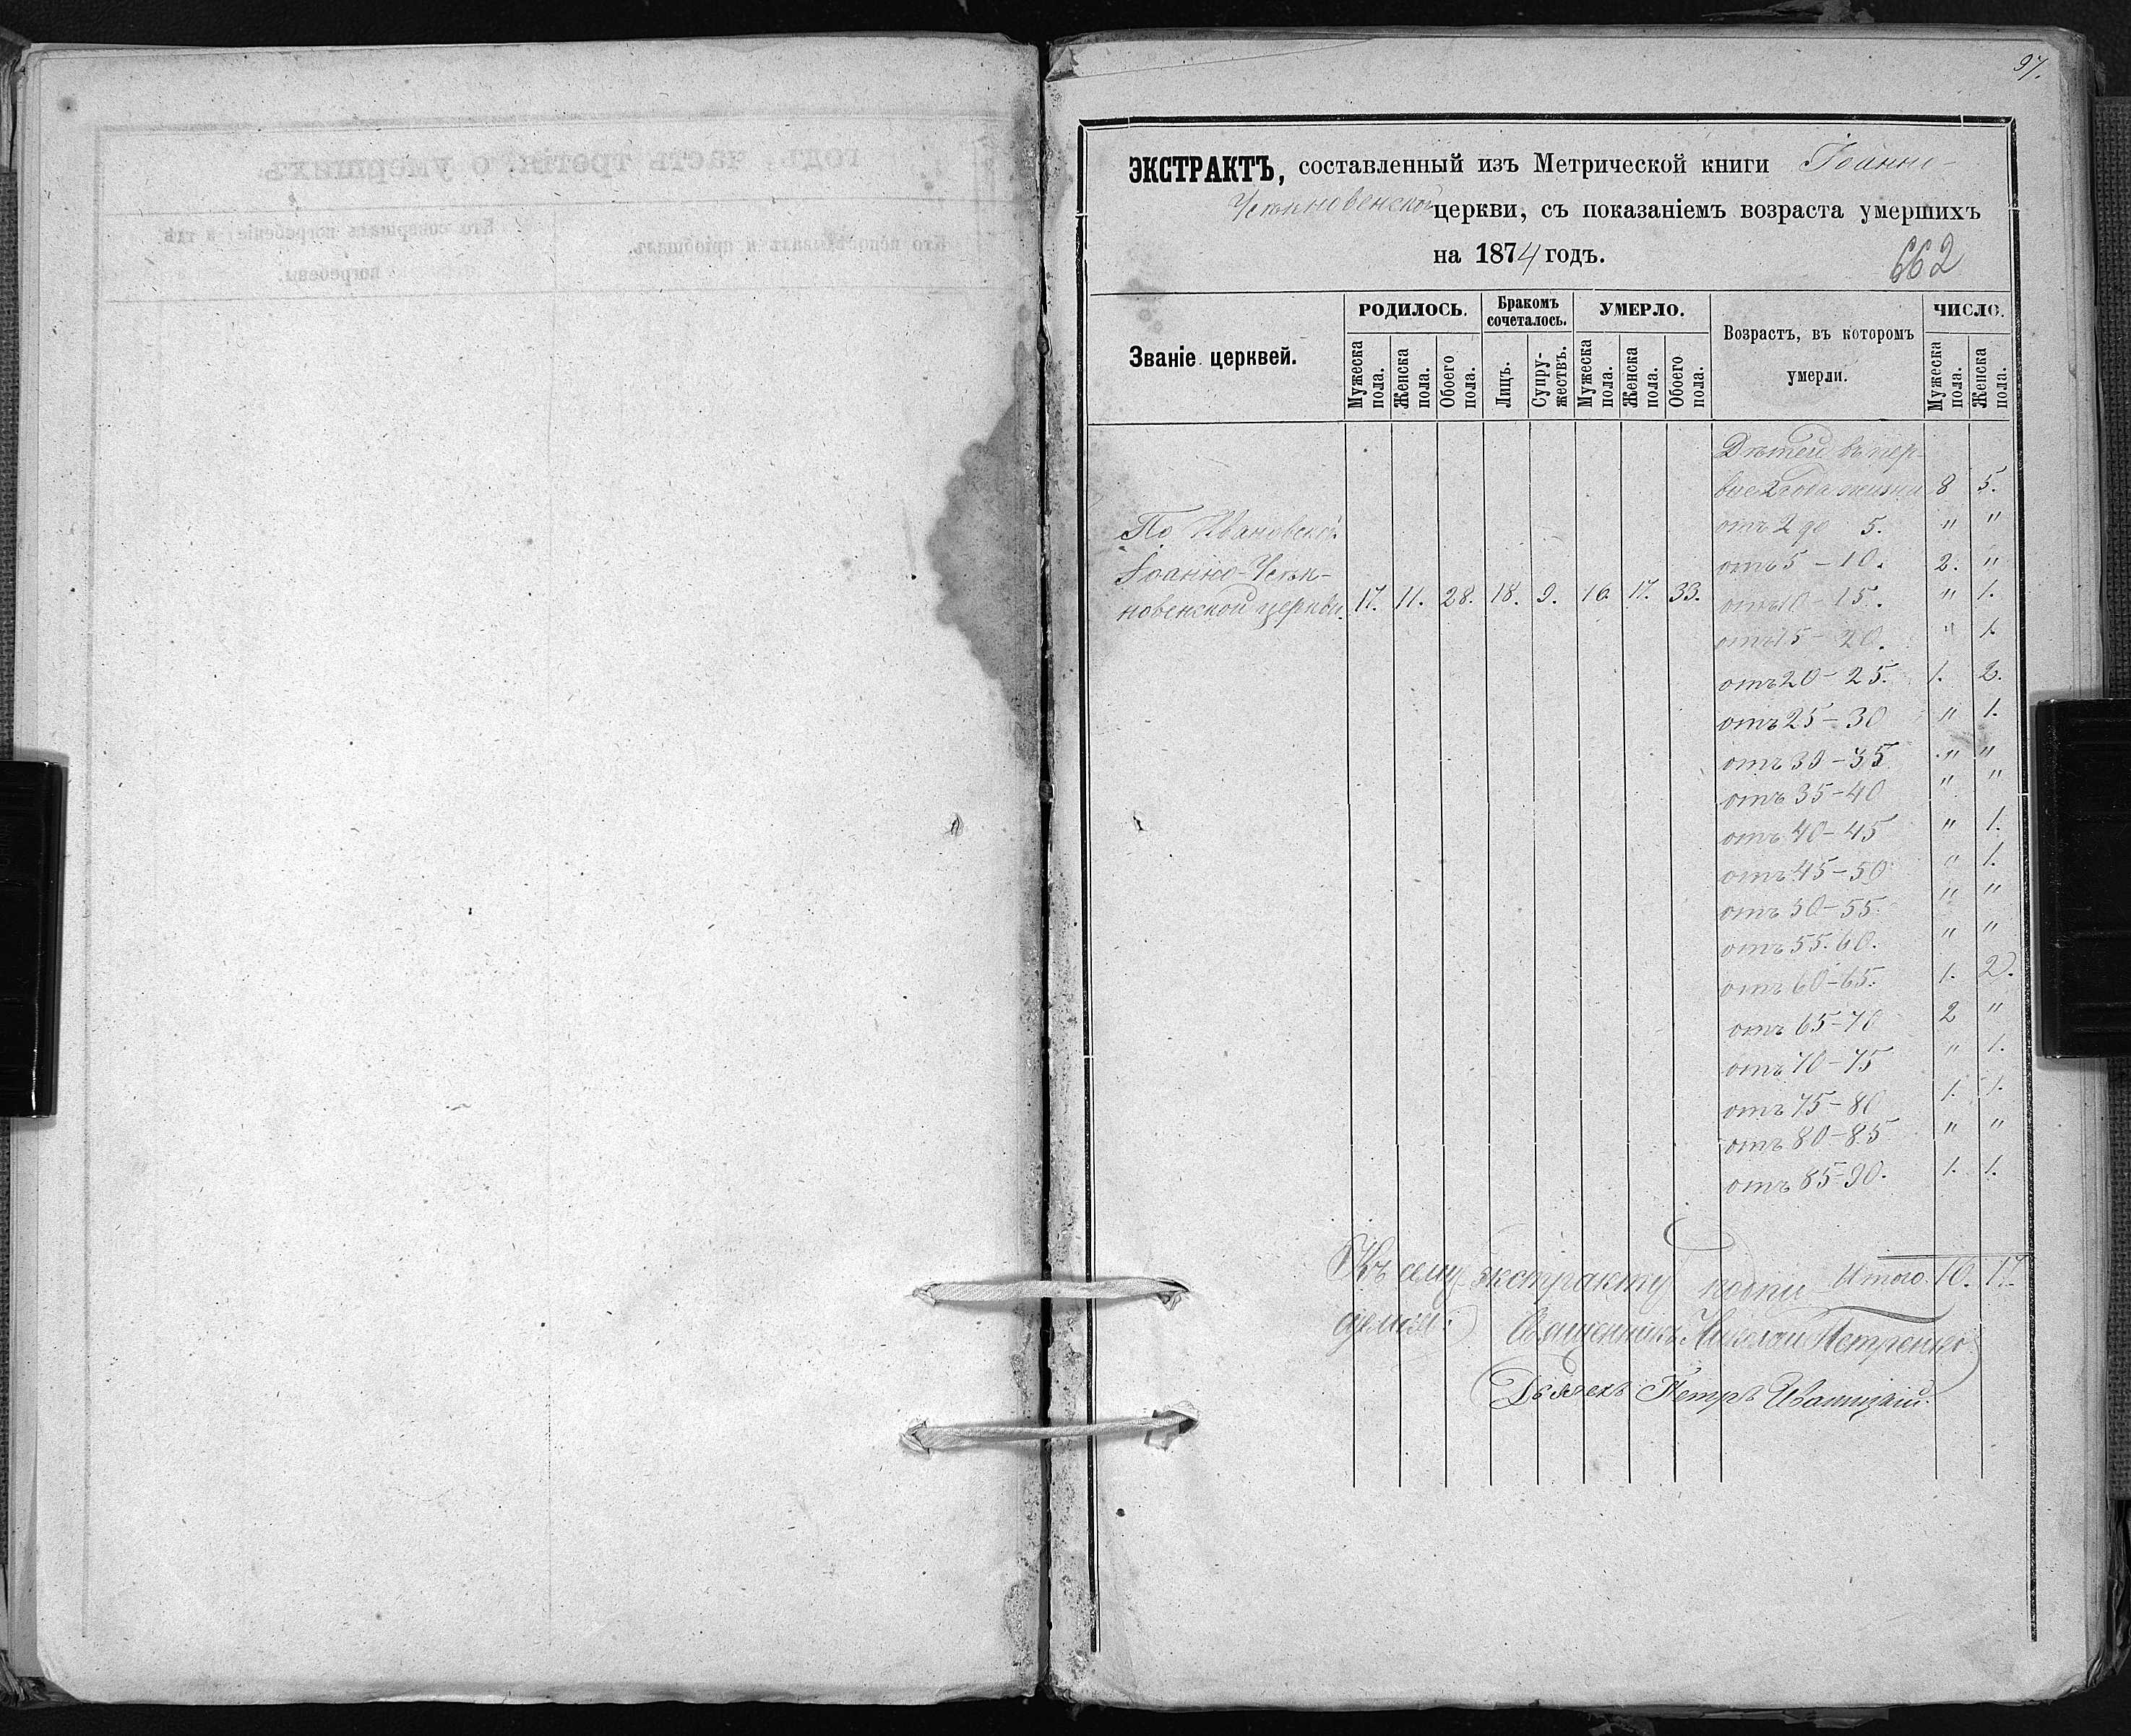 97.
ЭКСТРАКТЪ, составленный изъ Метрической книги Іоанно-
Усѣкновенской церкви, съ показаніемъ возраста умершихъ
на 1874 годъ.
662
Званіе церквей.
РОДИЛОСЬ.
Бракомъ сочеталось.
УМЕРЛО.
Возрастъ, въ которомъ умерли.
ЧИСЛО.
Мужеска пола.
Женска пола.
Обоего пола.
Лицъ.
Супружествъ.
Мужеска пола.
Женска пола.
Обоего пола.
Мужеска пола.
Женска пола.
Дѣтей въ пер-
вые 2 года жизни 8 5.
отъ 2 до 5. " "
отъ 5 - 10. 2. "
отъ 10 - 15. " 1.
отъ 15 - 20. " 1.
По Ивановской
Іоанно-Усѣк-
новенской церкви. 17. 11. 28. 18. 9. 16. 17. 33.
отъ 20 - 25. 1. 2.
отъ 25 - 30 " 1.
отъ 30 - 35 " "
отъ 35 - 40 " "
отъ 40 - 45 " 1.
отъ 45 - 50 " 1.
отъ 50 - 55. " "
отъ 55. 60. " "
отъ 60 - 65. 1. 2.
отъ 65 - 70 2 "
отъ 70 - 75 " 1.
отъ 75 - 80 1. 1.
отъ 80 - 85 " "
отъ 85 - 90. 1. 1.
Итого. 16. 17.
Къ сему экстракту
Священникъ Николай Петренко
Дьячекъ Петръ
годъ, часть третія, о умершихъ
Кто исповѣдывалъ и пріобщалъ.
Кто совершалъ погребеніе и гдѣ
погребены.